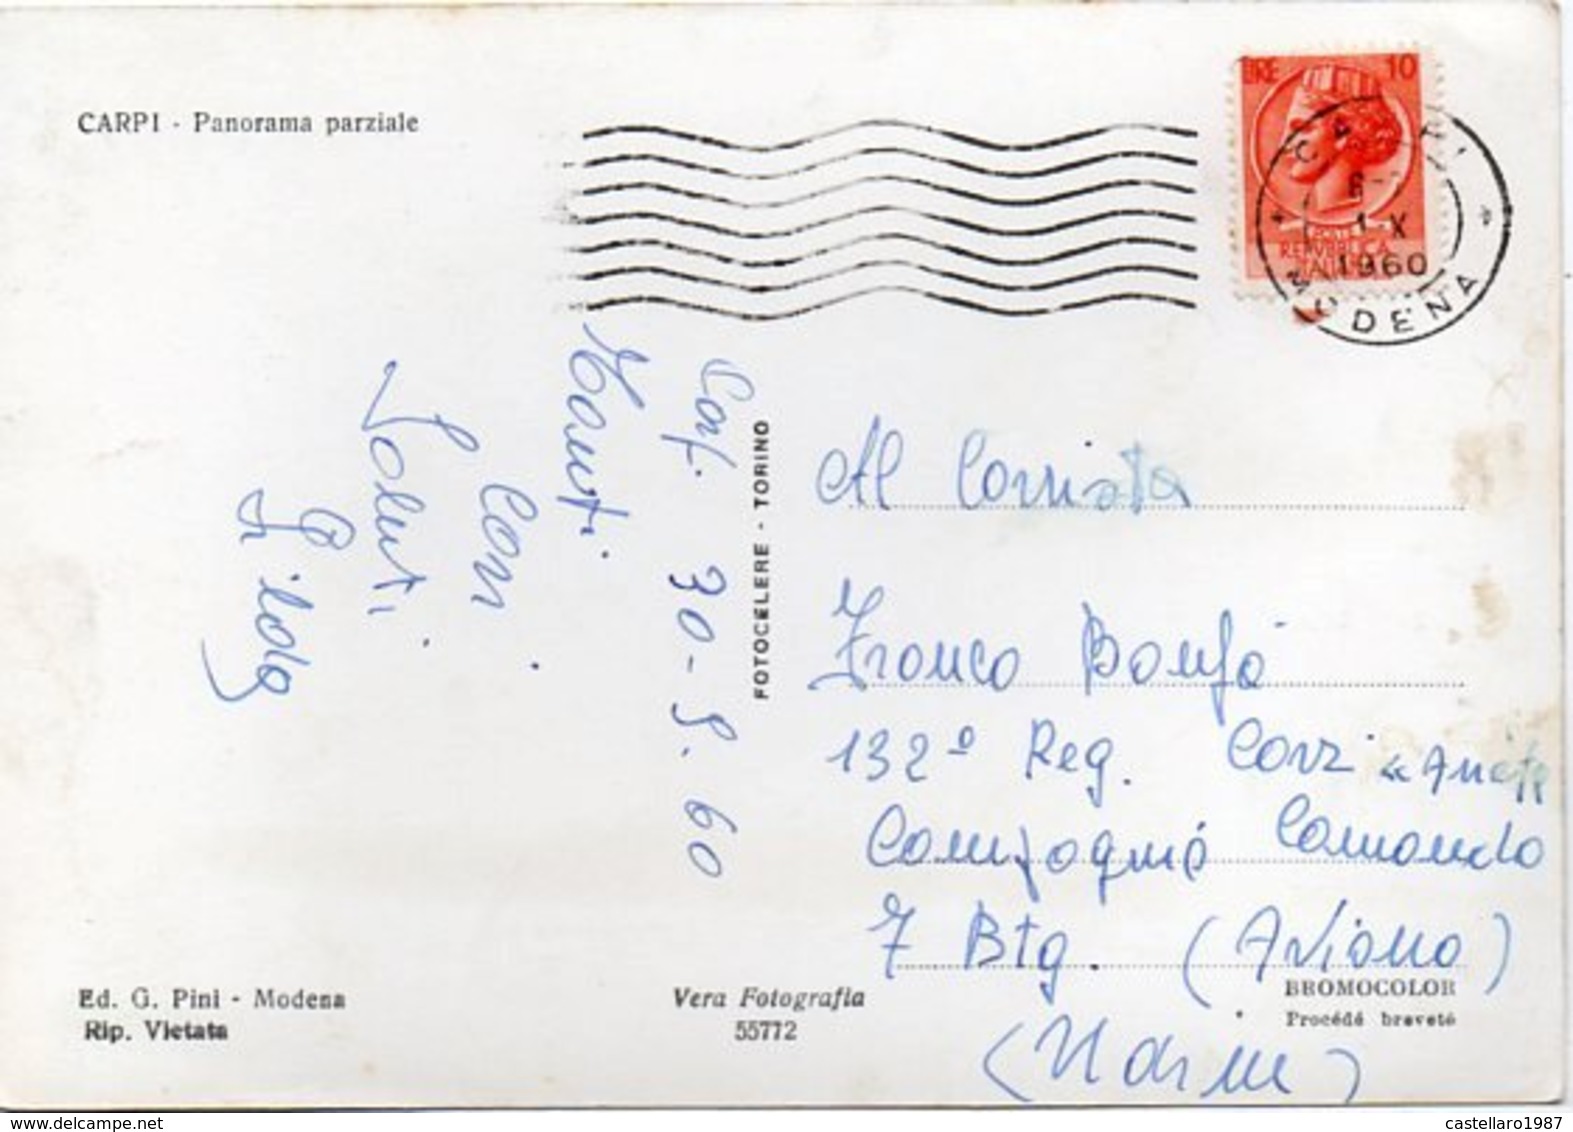 CARPI - Panorama parziale
LIRE 10
REPUBBLICA
CARPI
1-X
1960
MODENA
30-9.60
Con
Saluti
Gilda
FOTOCELERE - TORINO
Al Carrista
Franco Bonfà
132º Reg. Carri "Ariete
Compagnia Comando
7 Btg. (Aviano)
(Udine)
Ed. G. Pini - Modena
Rip. Vietata
Vera Fotografia
55772
BROMOCOLOR
Procédé breveté
castellaro1987